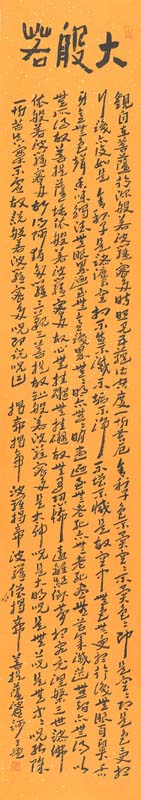 大般若
觀自在菩薩行深般若波羅蜜多時照見五蘊皆空度一切苦厄舍利子色不異空空不異色色即是空空即是色受想
行識亦復如是舍利子是諸法空相不生不滅不垢不淨不增不減是故空中無色無受想行識無眼耳鼻舌
身意無色聲香味觸法無眼界乃至無意識界無無明亦無無明盡乃至無老死亦無老死盡無苦集滅道無智亦無得以
無所得故菩提薩埵依般若波羅蜜多故心無罣礙無罣礙故無有恐怖遠離顛倒夢想究竟涅槃三世諸佛
依般若波羅蜜多故得阿耨多羅三藐三菩提故知般若波羅蜜多是大神咒是大明咒是無上咒是無等等咒能除
一切苦真實不虛故說般若波羅蜜多咒即說咒曰 揭諦揭諦 波羅揭諦 波羅僧揭諦 菩提薩婆訶